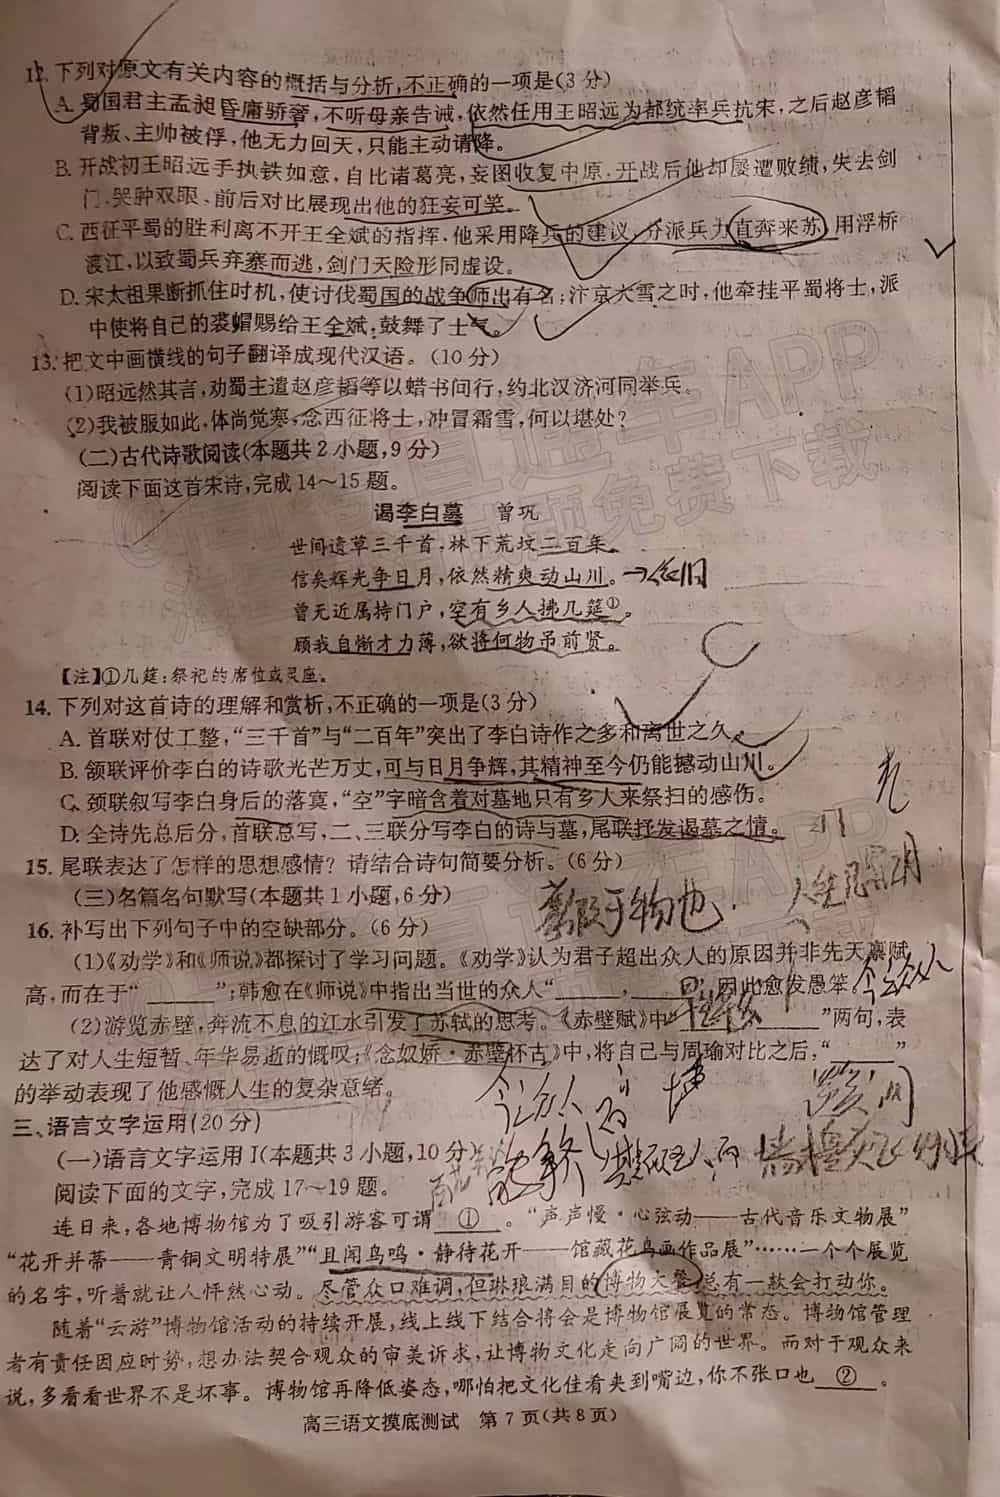 12. 下列对原文有关内容的概括与分析,不正确的一项是(3分)
A. 蜀国君主孟昶昏庸骄奢,不听母亲告诫,依然任用王昭远为都统率兵抗宋,之后赵彦韬
背叛、主帅被俘,他无力回天,只能主动请降。
B. 开战初王昭远手执铁如意,自比诸葛亮,妄图收复中原,开战后他却屡遭败绩,失去剑
门,哭肿双眼,前后对比展现出他的狂妄可笑。
C. 西征平蜀的胜利离不开王全斌的指挥,他采用降兵的建议,分派兵力直奔来苏,用浮桥
渡江,以致蜀兵弃寨而逃,剑门天险形同虚设。
D. 宋太祖果断抓住时机,使讨伐蜀国的战争师出有名;汴京大雪之时,他牵挂平蜀将士,派
中使将自己的裘帽赐给王全斌,鼓舞了士气。
13. 把文中画横线的句子翻译成现代汉语。(10分)
(1)昭远然其言,劝蜀主遣赵彦韬等以蜡书间行,约北汉济河同举兵。
(2)我被服如此,体尚觉寒,念西征将士,冲冒霜雪,何以堪处?
(二)古代诗歌阅读(本题共2小题,9分)
阅读下面这首宋诗,完成14~15题。
谒李白墓 曾巩
世间遗草三千首,林下荒坟二百年。
信矣辉光争日月,依然精爽动山川。
曾无近属持门户,空有乡人拂几筵①。
顾我自惭才力薄,欲将何物吊前贤。
【注】①几筵:祭祀的席位或灵座。
14. 下列对这首诗的理解和赏析,不正确的一项是(3分)
A. 首联对仗工整,“三千首”与“二百年”突出了李白诗作之多和离世之久。
B. 颔联评价李白的诗歌光芒万丈,可与日月争辉,其精神至今仍能撼动山川。
C. 颈联叙写李白身后的落寞,“空”字暗含着对墓地只有乡人来祭扫的感伤。
D. 全诗先总后分,首联总写,二、三联分写李白的诗与墓,尾联抒发谒墓之情。
15. 尾联表达了怎样的思想感情?请结合诗句简要分析。(6分)
(三)名篇名句默写(本题共1小题,6分)
善假于物也
16. 补写出下列句子中的空缺部分。(6分)
(1)《劝学》和《师说》都探讨了学习问题。《劝学》认为君子超出众人的原因并非先天禀赋
高,而在于“______”;韩愈在《师说》中指出当世的众人“______,______”,因此愈发愚笨。今之众人
(2)游览赤壁,奔流不息的江水引发了苏轼的思考。《赤壁赋》中“______”两句,表
达了对人生短暂、年华易逝的慨叹;《念奴娇·赤壁怀古》中,将自己与周瑜对比之后,“______”
的举动表现了他感慨人生的复杂意绪。
今之众人
三、语言文字运用(20分)
(一)语言文字运用Ⅰ(本题共3小题,10分)
阅读下面的文字,完成17~19题。
连日来,各地博物馆为了吸引游客可谓 ① 。“声声慢·心弦动——古代音乐文物展”
“花开并蒂——青铜文明特展”“且闻鸟鸣·静待花开——馆藏花鸟画作品展”……一个个展览
的名字,听着就让人怦然心动。尽管众口难调,但琳琅满目的博物大餐总有一款会打动你。
随着“云游”博物馆活动的持续开展,线上线下结合将会是博物馆展览的常态。博物馆管理
者有责任因应时势,想办法契合观众的审美诉求,让博物文化走向广阔的世界。而对于观众来
说,多看看世界不是坏事。博物馆再降低姿态,哪怕把文化佳肴夹到嘴边,你不张口也 ② 。
高三语文摸底测试 第7页(共8页)